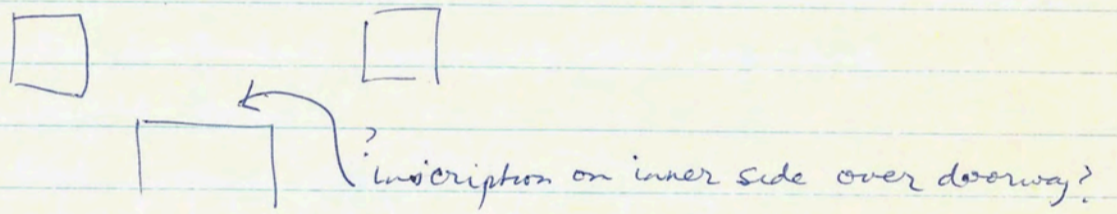 ?
inscription on inner side over doorway?